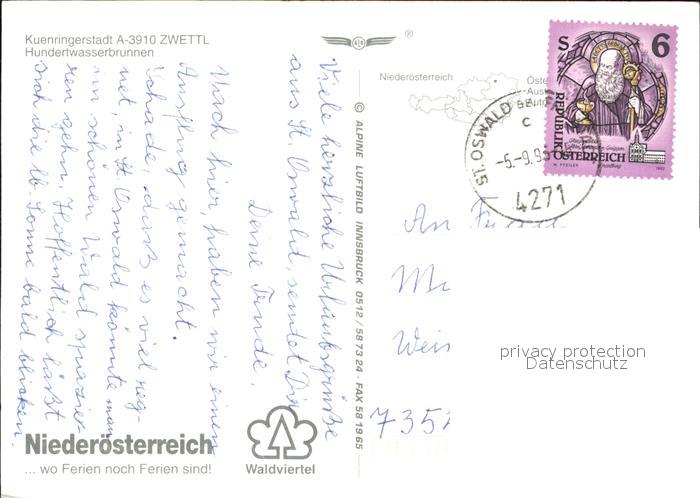 Kuenringerstadt A-3910 ZWETTL
Hundertwasserbrunnen
Viele herzliche Urlaubsgrüße
aus St. Oswald, sendet Dir
Deine
Auch hier, haben wir einen
Ausflug gemacht.
Schade, daß es viel reg-
net, in St Oswald könnte man
im schönen Wald spazie-
ren gehn. Hoffentlich läßt
sich die lb Sonne bald blicken.
Niederösterreich
... wo Ferien noch Ferien sind!
Waldviertel
© ALPINE LUFTBILD INNSBRUCK 0512/58 73 24 · FAX 58 19 65
®
Niederösterreich
S 6
REPUBLIK
ÖSTERREICH
ST. OSWALD
C
-5.-9.95
4271
An
Weis
735
privacy protection
Datenschutz